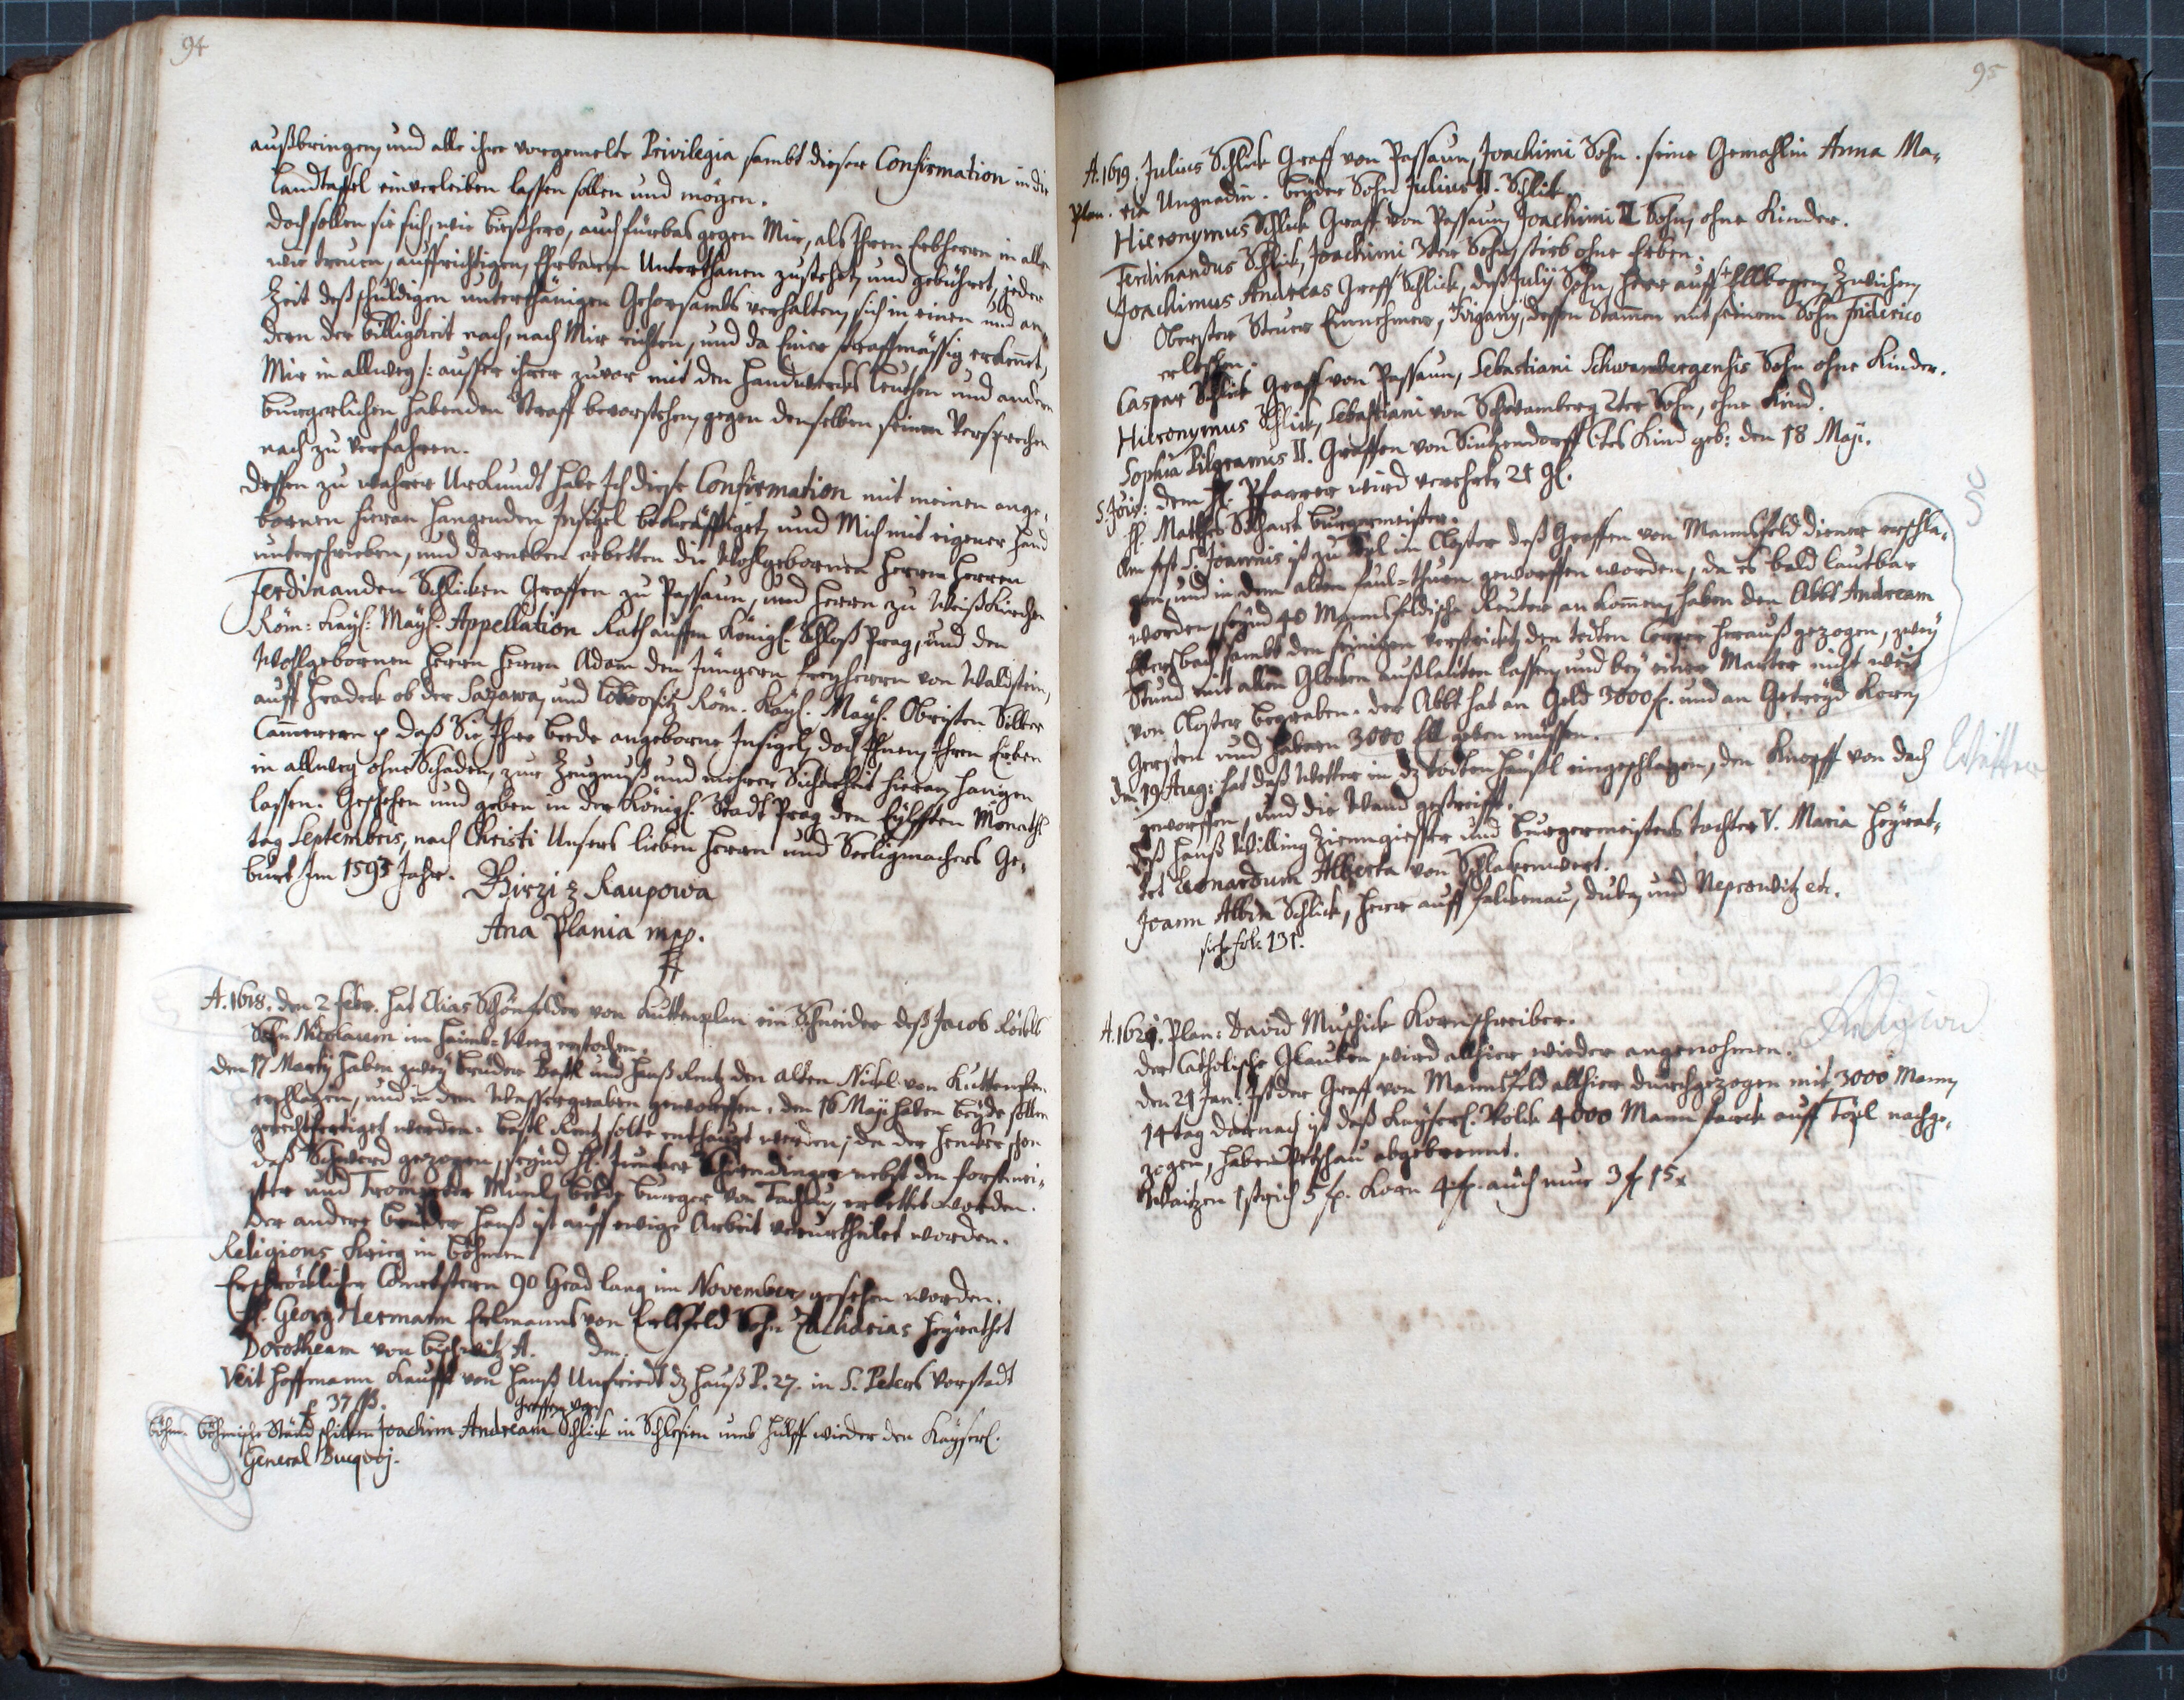 94
außbringen, und alle ihre vorgemelte Privilegia sambt dieser Confirmation in die
Landtaffel einverleiben lassen sollen und mögen.
doch sollen sie sich, wie bißhero, auch fürbas gegen Mir, als Ihren Erbherrn in alle
wie treuen, auffrichtigen, Ehrbaren Unterthanen zustehet, und gebühret, jeder
Zeit deß schuldigen unterthänigen Gehorsambs verhalten, sich in einen und an,
dern der billigkeit nach, nach Mir richten, und da Einer straffmässig erkent,
Mir in allweg /: ausser ihrer zuvor mit den Handwercks Leuthen und andern
burgerlichen habenden Straff bevorstehen, gegen denselben seinen Verbrechen
nach zu verfahren.
dessen zu wahrer Urkundt habe Ich diese Confirmation mit meinen ange,
bornen hieran hangenden Insigel bekräfftiget, und Mich mit eigener Hand
unterschrieben, und darneben erbetten die Wohlgebornen Herrn Herren
Ferdinanden Schlicken Graffen zu Passaun, und Herrn zu Weißkirchen
Röm: Kays: Mays. Appellation Rath auffm Königl. Schloß Prag, und den
Wohlgebornen Herrn Herrn Adam den Jüngern Freyherrn von Waldstein,
auff Hradek ob der Sazawa, und Lobositz Röm. Kays. Mays. Obristen Silber
Cammerern daß Sie Ihre beede angeborne Insigel, doch Ihnen, Ihren Erben
in allweg ohne Schaden, zur Zeugnuß und mehrer Sicherheit hieran hangen
lassen. Geschehen und geben in der Königl. Stadt Prag den Eylfften Monaths
tag Septembris, nach Christi Unsers lieben Herrn und Seeligmachers Ge,
burt Im 1595 Jahr.
Girzi z Raupowa
Ana Plania mpp.
A. 1618. den 2 Febr. hat Elias Schönfelder von Kuttenplan ein Schneider deß Jacob
Sohn Nicolaum im Haimb-Weg erstochen.
den 17 Martij haben zwey brüder Bastl und Hanß Rentz den alten Nickl von Kuttenplan
erschlagen, und in den Wassergraben geworffen. den 16 Maji haben beyde sollen
gerechtfertiget werden. Bastl Rentz solte enthaupt werden, da der Hencker schon
daß Schwerd gezogen, seynd H. Juncker nebst den Forstmei,
ster und Trompeter beede burger von Tachau, erbettet worden.
der andere bruder Hanß ist auff ewige Arbeit verurtheilet worden.
Religions Krieg in böhmen.
Erschröcklicher Cometstern 90 Grad lang im November, gesehen worden.
H. Georg Hermann Erlmanns von Erlsfeld Sohn Zacharias heyrathet
Dorotheam von A. den.
Veit Hoffmann kaufft von Hanß Unfriedt dz Hauß P. 27. in S. Peters Vorstadt
37 ß.
Graffen von
böhm. böhmische Ständ schicken Joachim Andream Schlick in Schlesien umb Hülff wieder den Kayserl.
General Bucqvoj.
95
A. 1619. Julius Schlick Graff von Passaun, Joachimi Sohn. seine Gemahlin Anna Ma,
Plan. ria Ungnadin. beyder Sohn Julius II. Schlik
Hieronymus Schlick Graff von Passaun, Joachimi II Sohn, ohne Kinder.
Ferdinandus Schlik, Joachimi 3ter Sohn, stirb ohne Erben.
Joachimus Andreas Graff Schlick, deß Julij Sohn, Herr auff Ellbogen,
Oberster Steuer Einnehmer, dessen Stammen mit seinem Sohn Friderico
erloschen.
Caspar Schlick Graff von Passaun, Sebastiani Schwambergensis Sohn ohne Kinder.
Hieronymus Schlick, Sebastiani von Schwamberg 2ter Sohn, ohne Kind.
Sophia Pilgramus II. Graffen von Sintzendorff Kind geb: den 18 Maji.
S. Jois: dem H. Pfarrer wird verehrt 24 gl.
H. Mathes burgermeister.
Am fest S. Joannis ist zu Töpl im Closter deß Graffen von Mannsfeld diener erschla,
gen, und in dem alten faul-thurn geworffen worden, da es bald lautbar
worden, seynd 40 Mannsfeldische Reuter an kommen, haben den Abbt Andream
Ebersbach sambt den seinigen verstrickt, den todten Cörper herauß gezogen, zwey
Stund mit allen Glocken außlauten lassen, und bey einer Marter nicht weit
von Closter begraben. der Abbt hat an Geld 3000 f. und an Getreyd Korn,
Gersten und Habern 3000 geben müssen.
Wetter
den 19 Aug: hat daß Wetter in dz todtenhäußl eingeschlagen, den Knopff von dach
geworffen, und die Wand gestreifft.
deß Hanß Willing Zienngiesser und burgermeisters tochter V. Maria heyrat,
tet Leonardum Alberta von Schlakenwert.
Joann Albin Schlick, Herr auff Falckenau, duba, und Neprowitz etc.
sieh fol. 131.
Religion
A. 1621. Plan: David Muschick Kornschreiber.
der Catholische Glauben wird allhier wieder angenohmen.
den 21 Jan. Ist der Graff von Mannsfeld allhier durchgezogen mit 3000 Mann,
14 tag darnach ist daß Kayserl. Volck 4000 Mann starck auff Töpl nachge,
zogen, haben Petschau abgebrennt.
Waitzen 1 strich 5 f. Korn 4 f. auch nur 3 f 15 x